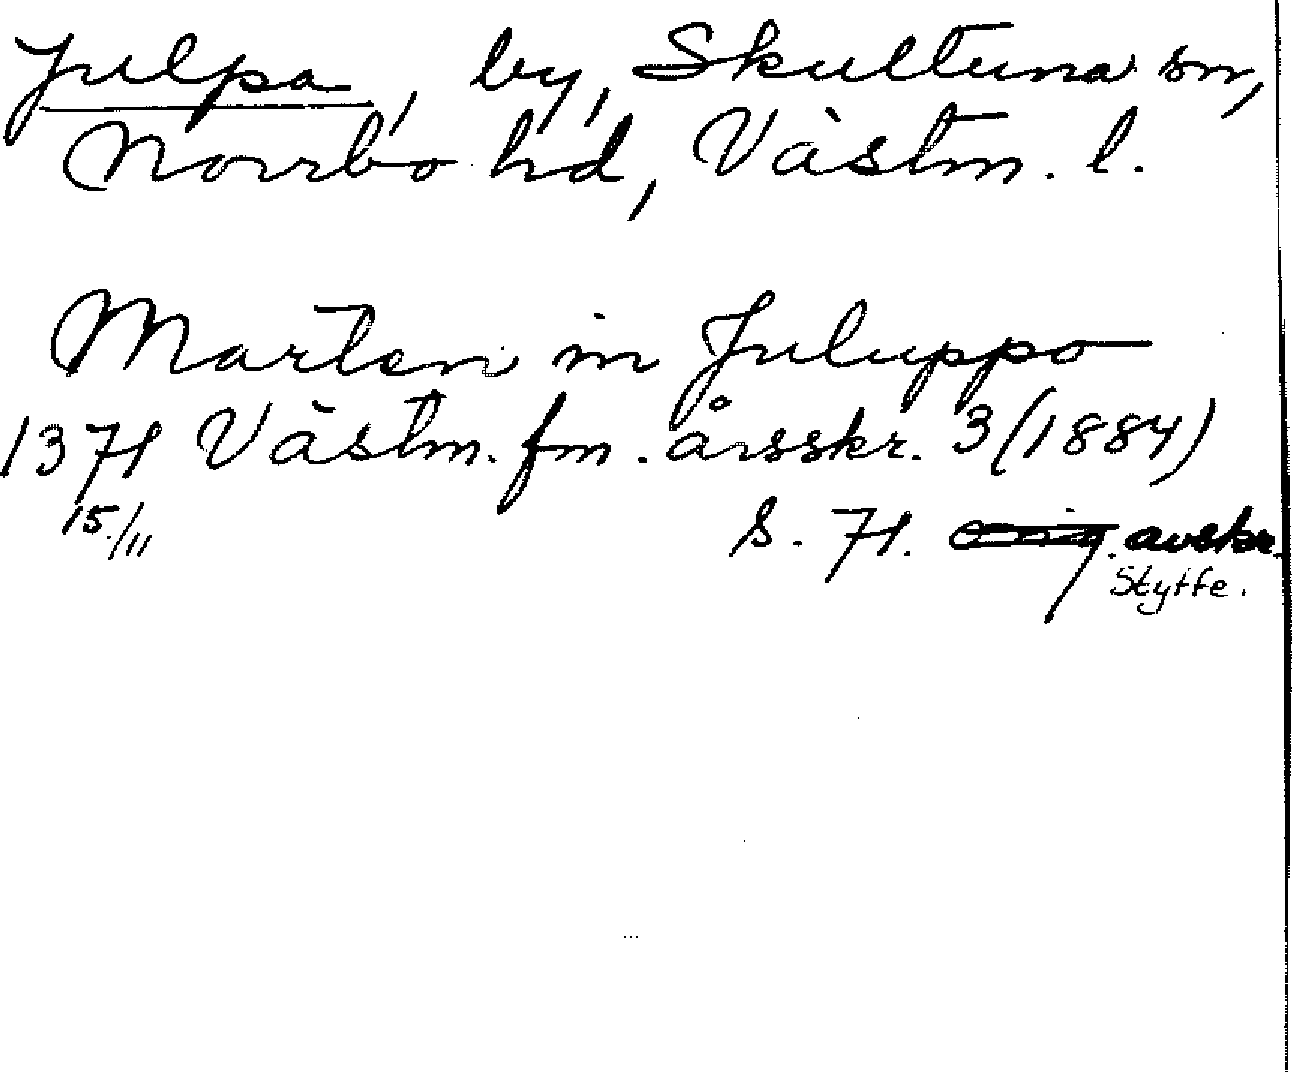 Julpa, by, Skultuna sn,
Norrbo hd, Västm. l.
Marten in Juluppo
1371 Västm. fm. årsskr. 3 (1884)
15/11 s. 71. avskr.
Styffe.